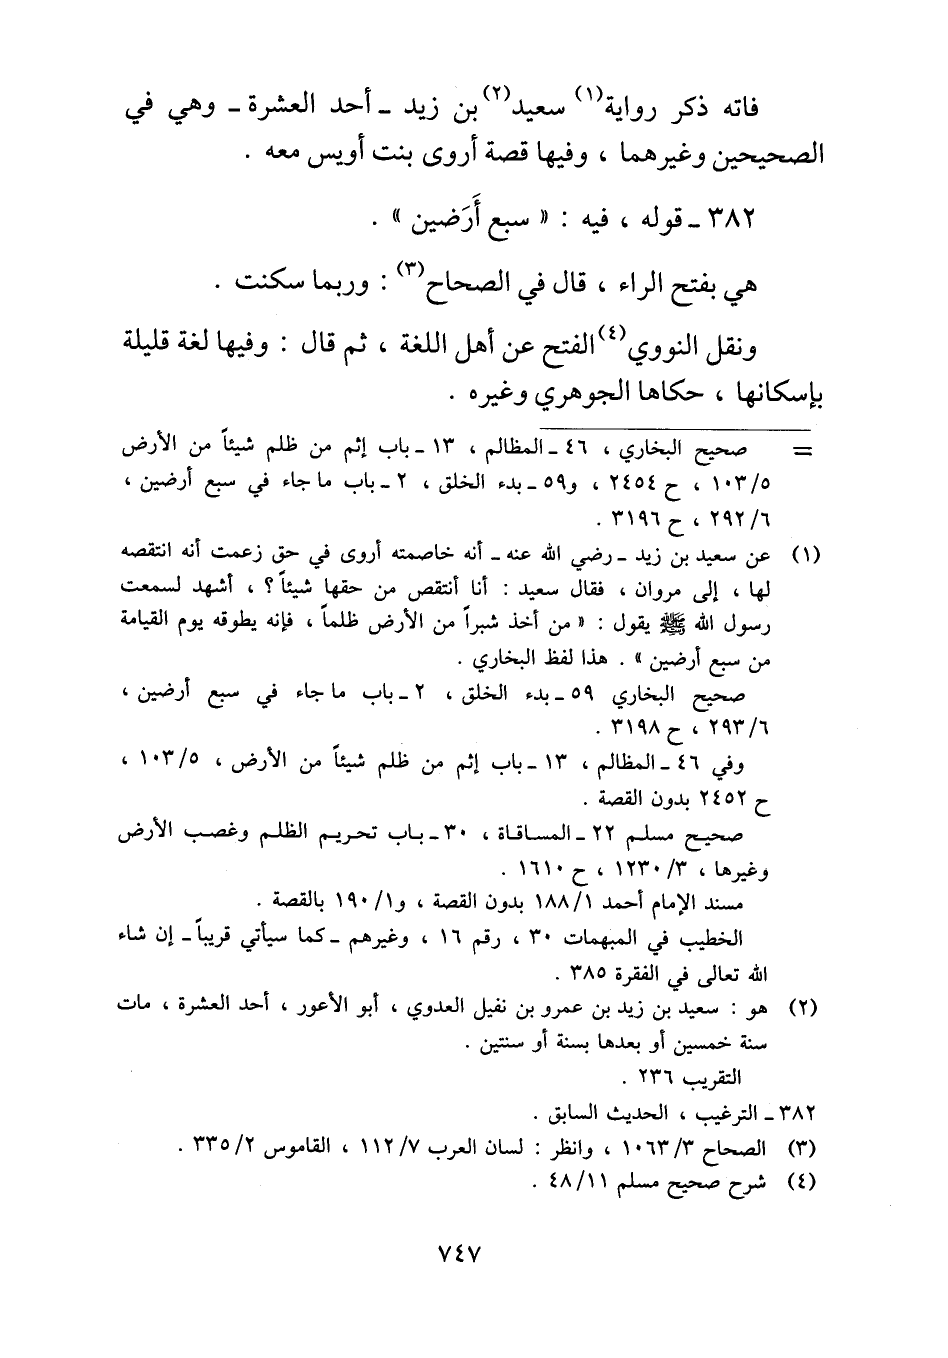 فاته ذكر رواية(١) سعيد(٢) بن زيد ـ أحد العشرة ـ وهي في
الصحيحين وغيرهما ، وفيها قصة أروى بنت أويس معه .
٣٨٢ ـ قوله ، فيه : « سبع أَرَضين » .
هي بفتح الراء ، قال في الصحاح(٣) : وربما سكنت .
ونقل النووي(٤) الفتح عن أهل اللغة ، ثم قال : وفيها لغة قليلة
بإسكانها ، حكاها الجوهري وغيره .
= صحيح البخاري ، ٤٦ ـ المظالم ، ١٣ ـ باب إثم من ظلم شيئاً من الأرض
١٠٣/٥ ، ح ٢٤٥٤ ، و٥٩ ـ بدء الخلق ، ٢ ـ باب ما جاء في سبع أرضين ،
٢٩٢/٦ ، ح ٣١٩٦ .
(١) عن سعيد بن زيد ـ رضي الله عنه ـ أنه خاصمته أروى في حق زعمت أنه انتقصه
لها ، إلى مروان ، فقال سعيد : أنا أنتقص من حقها شيئاً ؟ ، أشهد لسمعت
رسول الله ﷺ يقول : « من أخذ شبراً من الأرض ظلماً ، فإنه يطوقه يوم القيامة
من سبع أرضين » . هذا لفظ البخاري .
صحيح البخاري ٥٩ ـ بدء الخلق ، ٢ ـ باب ما جاء في سبع أرضين ،
٢٩٣/٦ ، ح ٣١٩٨ .
وفي ٤٦ ـ المظالم ، ١٣ ـ باب إثم من ظلم شيئاً من الأرض ، ١٠٣/٥ ،
ح ٢٤٥٢ بدون القصة .
صحيح مسلم ٢٢ ـ المساقاة ، ٣٠ ـ باب تحريم الظلم وغصب الأرض
وغيرها ، ١٢٣٠/٣ ، ح ١٦١٠ .
مسند الإمام أحمد ١٨٨/١ بدون القصة ، و١٩٠/١ بالقصة .
الخطيب في المبهمات ٣٠ ، رقم ١٦ ، وغيرهم ـ كما سيأتي قريباً ـ إن شاء
الله تعالى في الفقرة ٣٨٥ .
(٢) هو : سعيد بن زيد بن عمرو بن نفيل العدوي ، أبو الأعور ، أحد العشرة ، مات
سنة خمسين أو بعدها بسنة أو سنتين .
التقريب ٢٣٦ .
٣٨٢ ـ الترغيب ، الحديث السابق .
(٣) الصحاح ١٠٦٣/٣ ، وانظر : لسان العرب ١١٢/٧ ، القاموس ٣٣٥/٢ .
(٤) شرح صحيح مسلم ٤٨/١١ .
٧٤٧